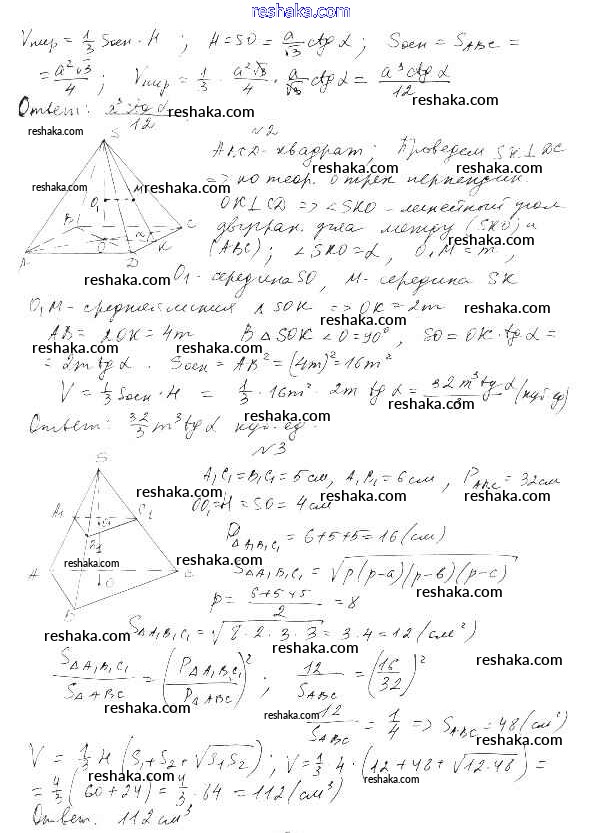 reshaka.com
Vпир = 1/3 Sосн · H ; H = SO = a/√3 ctg α ; Sосн = S ABC =
= a²√3/4 ; Vпир = 1/3 · a²√3/4 · a/√3 ctg α = a³ctg α/12
Ответ: a³ctg α/12
№2
ABCD - квадрат; Проведем SK ⊥ DC
=> по теор. о трех перпендик.
OK ⊥ CD => ∠SKO - линейный угол
двугран. угла между (SKD) и
(ABC); ∠SKO = α, O₁M = m,
O₁ - середина SO, M - середина SK
O₁M - средняя линия Δ SOK => OK = 2m
AB = 2OK = 4m В Δ SOK ∠O = 90°, SO = OK · tg α =
= 2m tg α. Sосн = AB² = (4m)² = 16m²
V = 1/3 Sосн · H = 1/3 · 16m² · 2m tg α = 32m³tg α/3 (куб. ед)
Ответ: 32/3 m³ tg α куб. ед.
№3
A₁C₁ = B₁C₁ = 5 см, A₁B₁ = 6 см, P ABC = 32 см
OO₁ = H = SO = 4 см
P Δ A₁B₁C₁ = 6+5+5 = 16 (см)
S Δ A₁B₁C₁ = √p(p-a)(p-b)(p-c)
p = 6+5+5/2 = 8
S Δ A₁B₁C₁ = √8·2·3·3 = 3·4 = 12 (см²)
S Δ A₁B₁C₁/S Δ ABC = (P Δ A₁B₁C₁/P Δ ABC)² ; 12/S ABC = (16/32)²
12/S ABC = 1/4 => S ABC = 48 (см²)
V = 1/3 H (S₁+S₂+√S₁S₂); V = 1/3 · 4 · (12+48+√12·48) =
= 4/3 (60+24) = 4/3 · 84 = 112 (см³)
Ответ: 112 см³